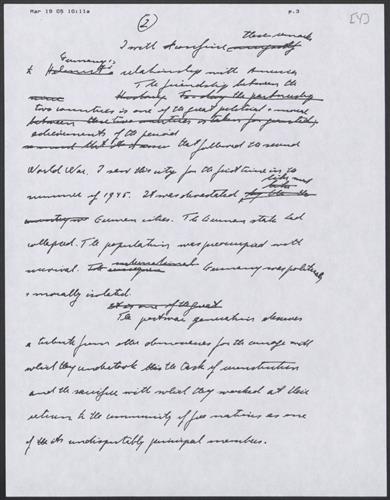 Mar 19 05 10:11a p.3
(2) [4]
these remarks
I will
Germany's
to relationship with America
The friendship between the
Today the partnership
two countries is one of the great political & moral
between these two countries is taken for granted
achievements of the period
that followed the second
World War. I saw this city for the first time in the
like most
summer of 1945. It was devastated
German cities. The German state had
collapsed. The population was preoccupied with
survival. Germany was politically
& morally isolated.
It is one of the great
The postwar generation deserves
a tribute from the democracies for the courage with
which they undertook the task of reconstruction
and the sacrifice with which they worked at their
return to the community of free nations as one
of its undisputibly principal members.